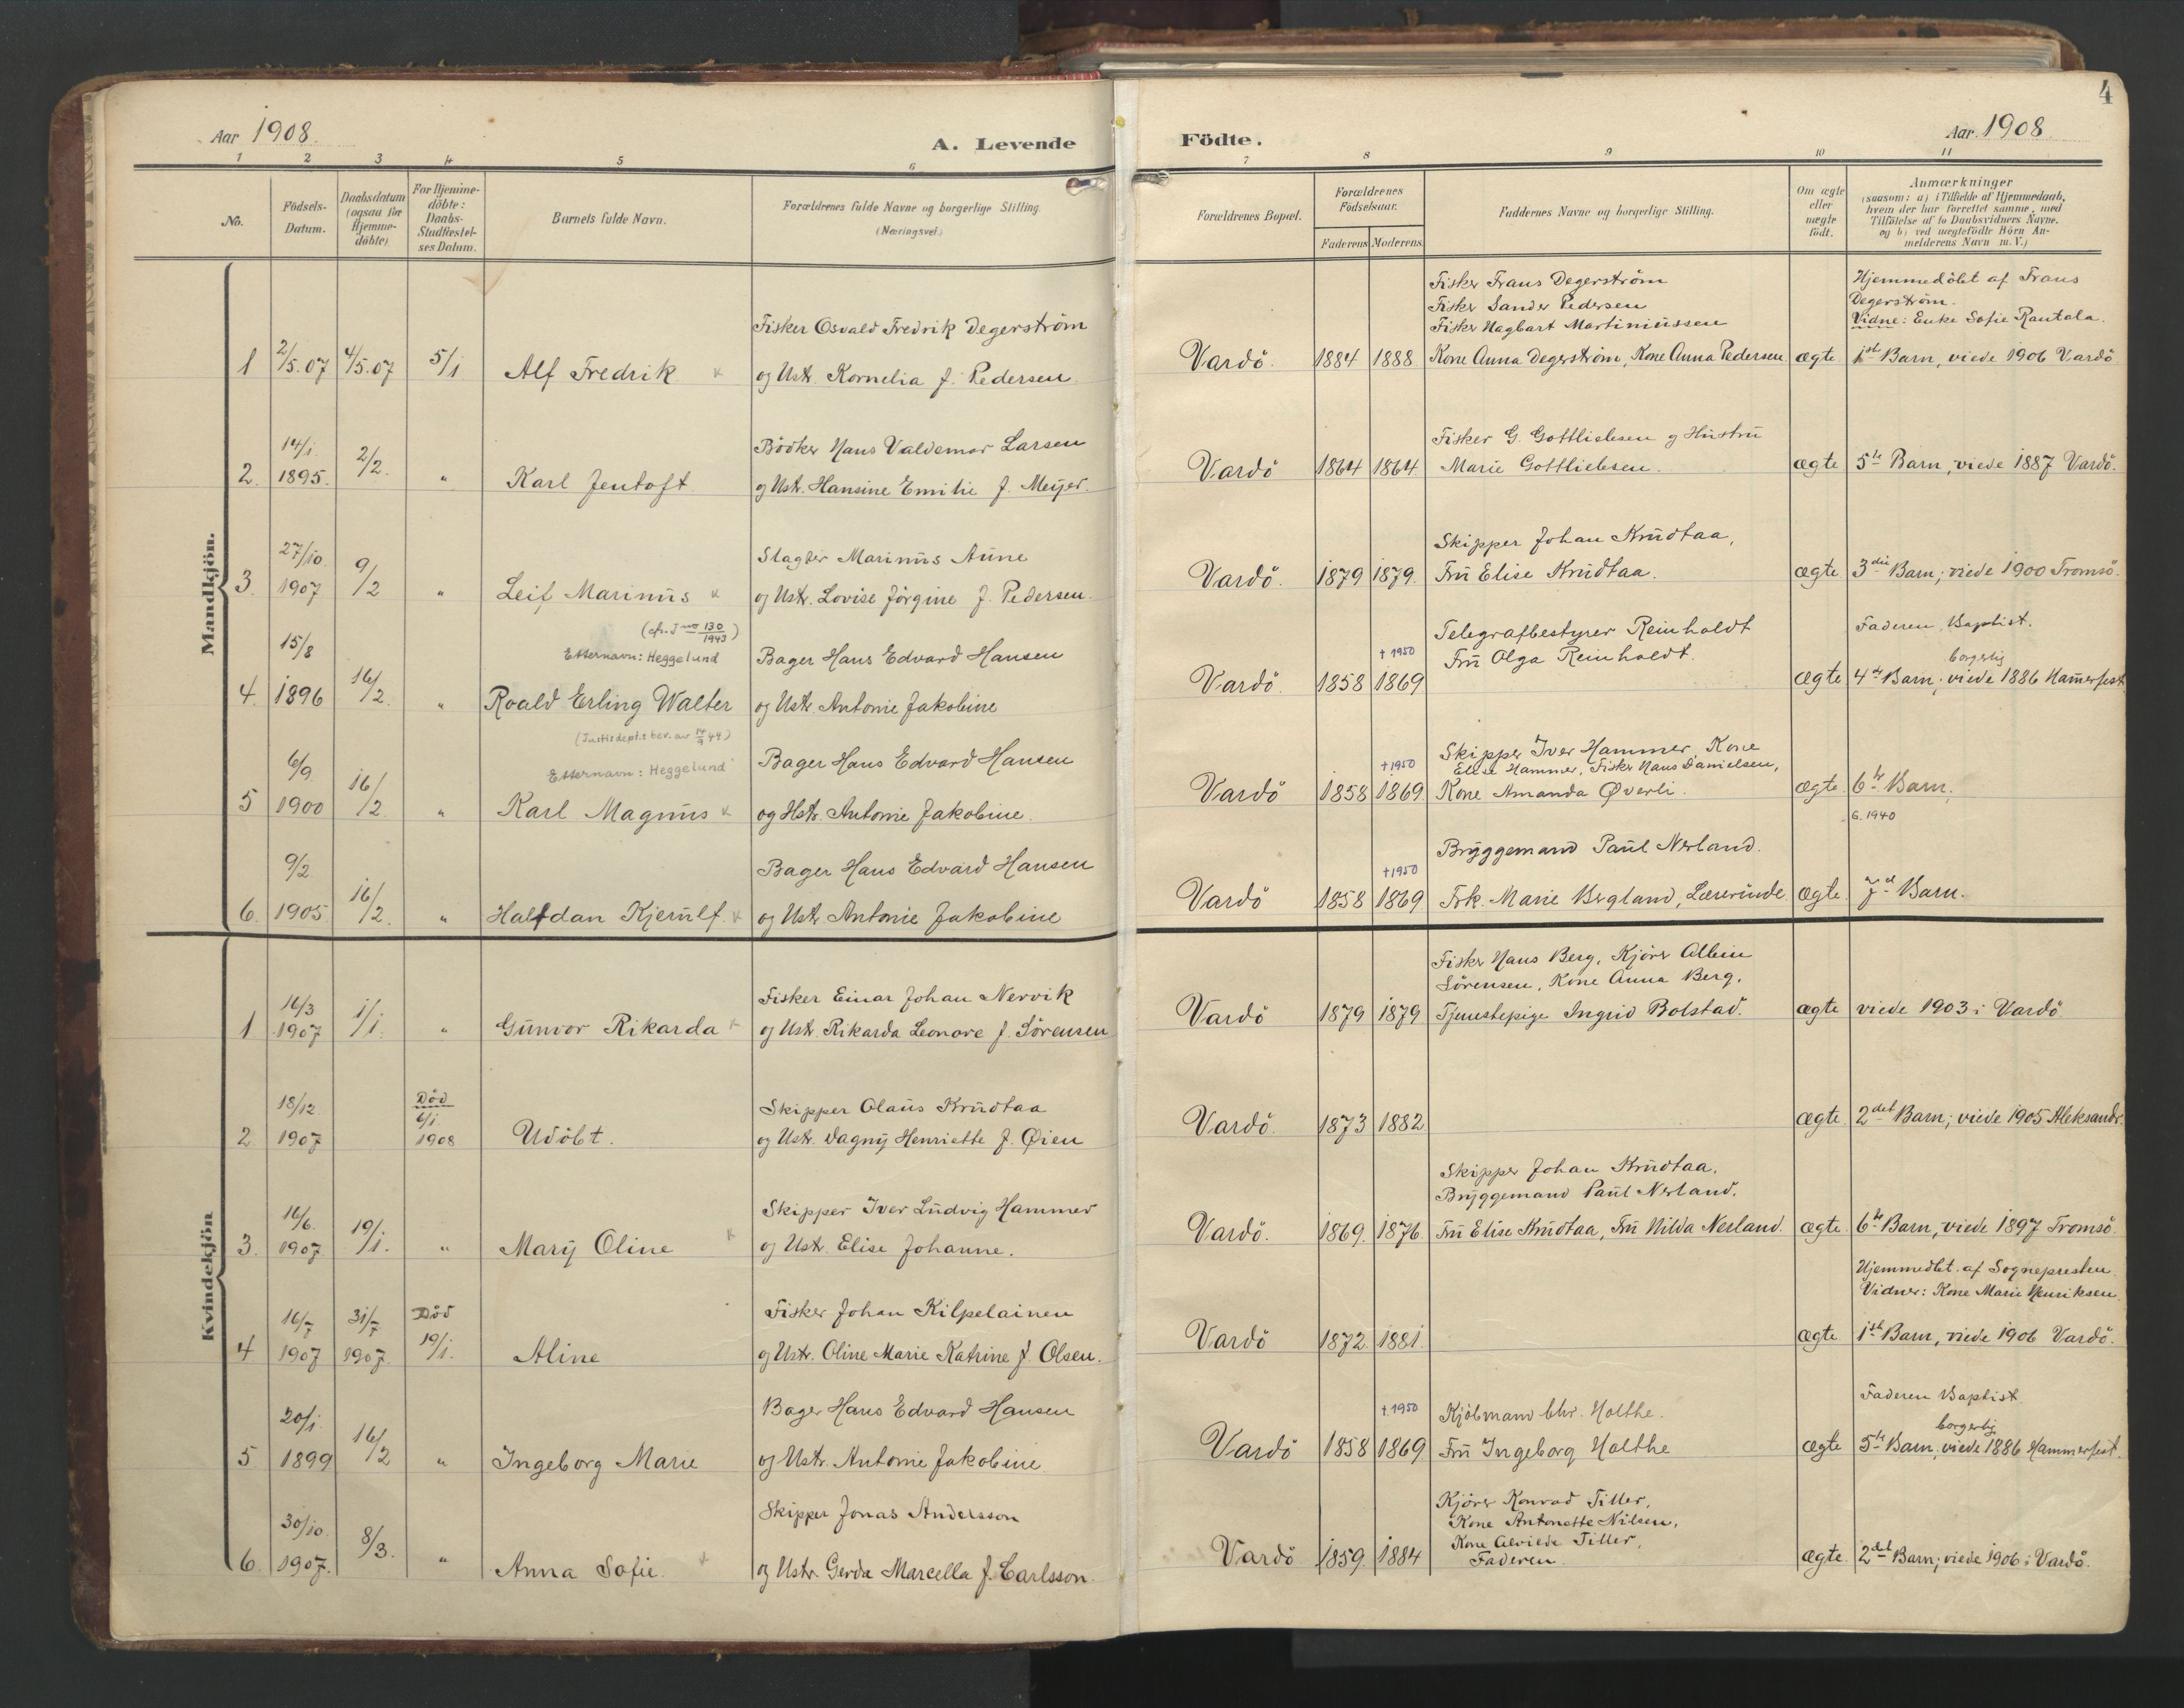 4
Aar 1908.
A. Levende
Födte.
Aar. 1908
1 2 3 4 5 6
7 8 9 10 11
No.
Födsels-
Datum.
Daabsdatum
(ogsaa for
Hjemme-
döbte)
For Hjemme-
döbte:
Daabs-
Stadfæstel-
ses Datum.
Barnets fulde Navn.
Forældrenes fulde Navne og borgerlige Stilling.
(Næringsvei.)
Forældrenes Bopæl.
Forældrenes
Födselsaar.
Faderens Moderens
Faddernes Navne og borgerlige Stilling.
Om ægte
eller
uægte
født.
Anmærkninger
(saasom: a) i Tilfælde af Hjemmedaab,
hvem der har forrettet samme, med
Tilföielse af to Daabsvidners Navne.
og b) ved uægtefödte Börn An-
melderens Navn m. V.)
Mandkjön.
Fisker Frans Degerström
Fisker Sander Pedersen
Fisker Hagbart Martiniussen
Hjemmedöbt af Frans
Degerström.
Vidne: Enke Sofie Rantala.
Fisker Osvald Fredrik Degerström
1 2/5.07 4/5.07 5/1 Alf Fredrik og Hstr. Kornelia f. Pedersen Vardö. 1884 1888 Kone Anna Degerström, Kone Anna Pedersen ægte 1ste Barn, viede 1906 Vardö
14/1.
Bödker Hans Valdemar Larsen
Fisker G. Gottliebsen og Hustru
2. 1895. 2/2. " Karl Jentoft og Hstr. Hansine Emilie f. Meyer. Vardö 1864 1864 Marie Gottliebsen. ægte 5te Barn, viede 1887 Vardö.
27/10.
Slagter Marinus Aune
Skipper Johan Krudtaa,
3. 1907 9/2 " Leif Marinus og Hstr. Lovise Jörgine f. Pedersen. Vardö. 1879 1879. Fru Elise Krudtaa. ægte 3die Barn; viede 1900 Tromsö.
(cfr. J no 130/1943)
Etternavn: Heggelund
15/8
Bager Hans Edvard Hansen
† 1950
Telegrafbestyrer Reinholdt
Fru Olga Reinholdt.
Faderen, Baptist.
borgerlig
4. 1896 16/2. " Roald Erling Walter og Hstr. Antonie Jakobine Vardö. 1858 1869 ægte 4de Barn; viede 1886 Hammerfest
(Justisdept.s bev. av 14/9 44)
Etternavn: Heggelund
6/9
Bager Hans Edvard Hansen
† 1950
Skipper Iver Hammer, Kone
Elise Hammer, Fisker Hans Danielsen,
5 1900 16/2. " Karl Magnus og Hstr. Antonie Jakobine. Vardö 1858 1869 Kone Amanda Øverli. ægte. 6te Barn.
G. 1940
9/2
Bager Hans Edvard Hansen
† 1950
Bryggemand Paul Nerland.
6. 1905 16/2. " Halfdan Kjerulf. og Hstr. Antonie Jakobine Vardö 1858 1869 Frk. Marie Bergland, Lærerinde ægte. 7de Barn.
Kvindekjön
16/3
Fisker Einar Johan Nervik
Fisker Hans Berg, Kjörer Albin
Sörensen, Kone Anna Berg,
1 1907 1/1. " Gunvor Rikarda og Hstr. Rikarda Leonore f. Sörensen Vardö 1879 1879 Tjenestepige Ingrid Bolstad. ægte viede 1903 i Vardö
18/12.
Död
6/1
Skipper Olaus Krudtaa
2 1907 1908 Udöbt. og Hstr. Dagny Henriette f. Øien Vardö. 1873 1882 ægte. 2det Barn; viede 1905 Aleksandr.
16/6.
Skipper Iver Ludvig Hammer
Skipper Johan Krudtaa.
Bryggemand Paul Nerland.
3. 1907. 19/1. " Mary Oline og Hstr. Elise Johanne. Vardö. 1869. 1876. Fru Elise Krudtaa, Fru Hilda Nerland. ægte. 6te Barn, viede 1897 Tromsö.
16/7 31/7 Död
Fisker Johan Kilpelainen
Hjemmedbt. af Sognepresten
Vidner: Kone Marie Henriksen.
4 1907 1907. 19/1. Aline og Hstr. Oline Marie Katrine f. Olsen. Vardö 1872. 1881. ægte 1ste Barn, viede 1906 Vardö.
20/1.
Bager Hans Edvard Hansen
† 1950
Kjöbmand Chr. Holthe.
Faderen Baptist
borgerlig
5 1899 16/2 " Ingeborg Marie og Hstr. Antonie Jakobine Vardö 1858 1869 Fru Ingeborg Holthe ægte 5te Barn, viede 1886 Hammerfest.
30/10.
Skipper Jonas Andersson
Kjörer Konrad Tiller,
Kone Antonette Nilsen,
Kone Alvilde Tiller,
6. 1907. 8/3. " Anna Sofie. og Hstr. Gerda Marcella f. Carlsson. Vardö 1859. 1884 Faderen. ægte. 2det Barn; viede 1906 i Vardö.